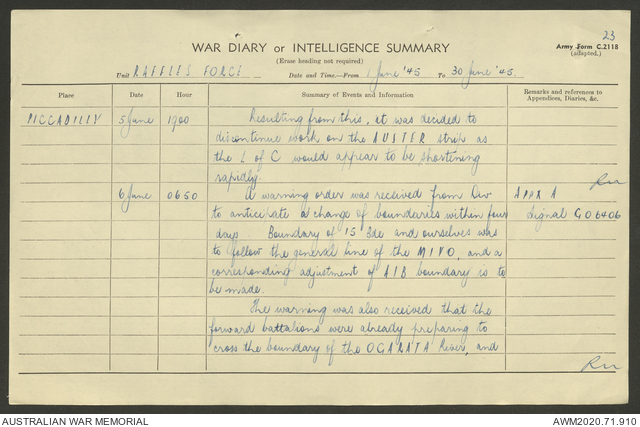 23
WAR DIARY or INTELLIGENCE SUMMARY
(Erase heading not required)
Army Form C.2118
(adapted.)
Unit RAFFLES FORCE Date and Time.—From 1 June '45 To 30 June '45.
Place Date Hour Summary of Events and Information Remarks and references to
Appendices, Diaries, &c.
PICCADILLY 5 June 1700 Resulting from this, it was decided to
discontinue work on the AUSTER strip as
the L of C would appear to be shortening
rapidly.
6 June 0650 A warning order was received from Div APPX A
to anticipate a change of boundaries within four Signal GO6406
days. Boundary of 15 Bde and ourselves was
to follow the general line of the MIVO, and a
corresponding adjustment of AIB boundary is to
be made.
The warning was also received that the
forward battalions were already preparing to
cross the boundary of the OGARATA River, and
AUSTRALIAN WAR MEMORIAL
AWM2020.71.910